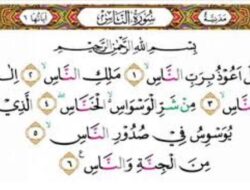 مدنية سُورَةُ النَّاسِ آياتها ٦
بِسْمِ اللَّهِ الرَّحْمَٰنِ الرَّحِيمِ
أَعُوذُ بِرَبِّ النَّاسِ ١ مَلِكِ النَّاسِ ٢
النَّاسِ ٣ مِن شَرِّ الْوَسْوَاسِ الْخَنَّاسِ ٤ الَّذِي
يُوَسْوِسُ فِي صُدُورِ النَّاسِ ٥
مِنَ الْجِنَّةِ وَالنَّاسِ ٦